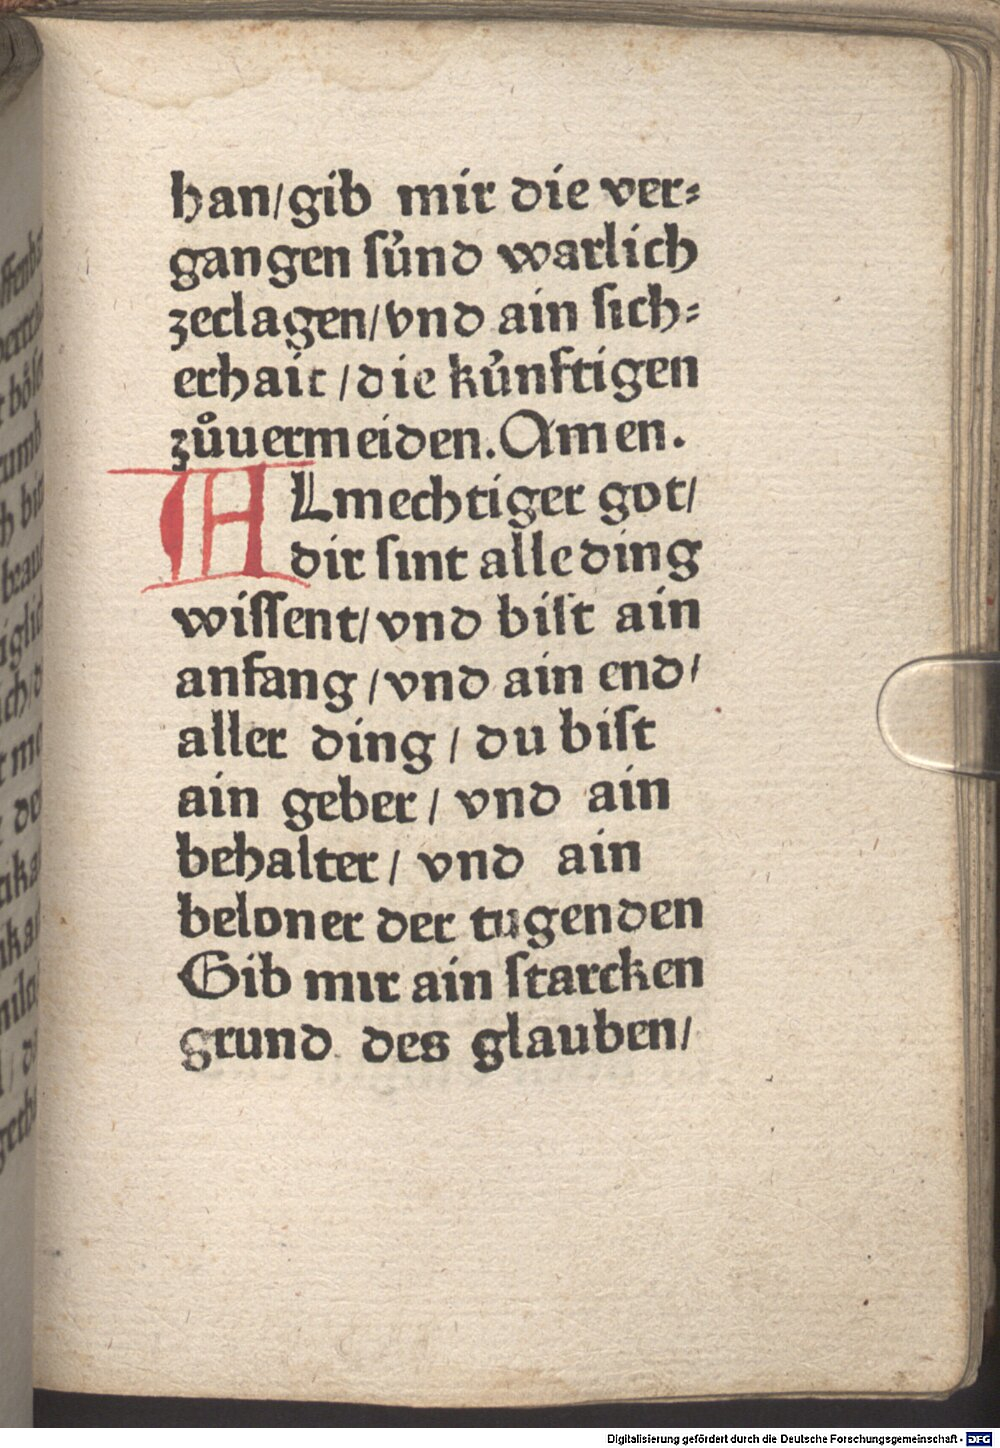 han/gib mir die ver⸗
gangen ſuͤnd warlich
zeclagen/vnd ain ſich⸗
erhait /die kuͤnftigen
zuͦuermeiden. Amen.
ALmechtiger got/
dir ſint alle ding
wiſſent/vnd biſt ain
anfang /vnd ain end/
aller ding / du biſt
ain geber / vnd ain
behalter / vnd ain
beloner der tugenden
Gib mir ain ſtarcken
grund des glauben/
Digitalisierung gefördert durch die Deutsche Forschungsgemeinschaft - DFG